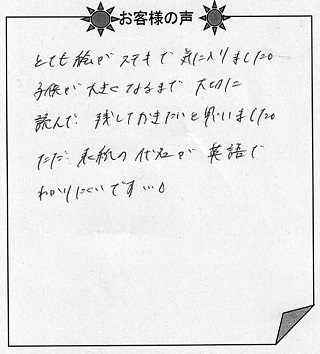 お客様の声
とても絵がステキで気に入りました。
子供が大きくなるまで大切に
読んで残しておきたいと思いました。
ただ表紙の代名が英語で
わかりにくいです…。